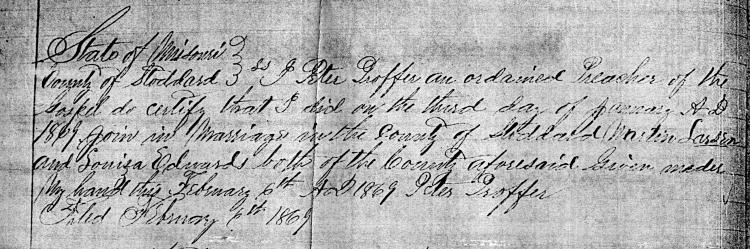 State of Missouri }
County of Stoddard } ss I Peter Proffer an ordained Preacher of the
Gospel do certify that I did on the third day of january A.D
1869 join in Marriage in the County of Stoddard Martin
and Louisa Edwards both of the County aforesaid Given under
My hand this February 6th AD 1869 Peter Proffer
Filed February 6th 1869